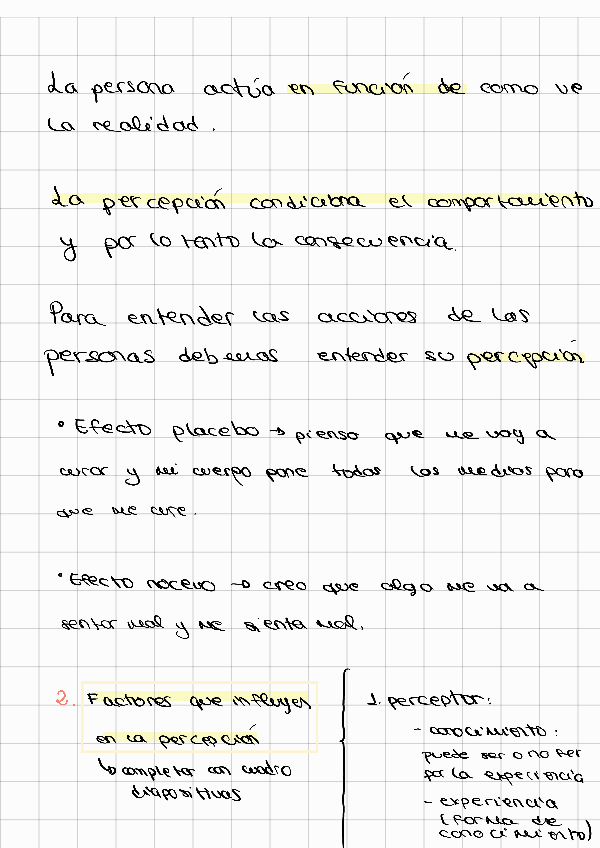 La persona actúa en función de como ve
la realidad.
La percepción condiciona el comportamiento
y por lo tanto la consecuencia.
Para entender las acciones de las
personas debemos entender su percepción
• Efecto placebo → pienso que me voy a
curar y mi cuerpo pone todos los medios para
que me cure.
• Efecto nocevo → creo que algo me va a
sentar mal y me sienta mal.
2. Factores que influyen
en la percepción
↳ completar con cuadro
diapositivas
1. perceptor:
- conocimiento:
puede ser o no ser
por la experiencia
- experiencia
(forma de
conocimiento)